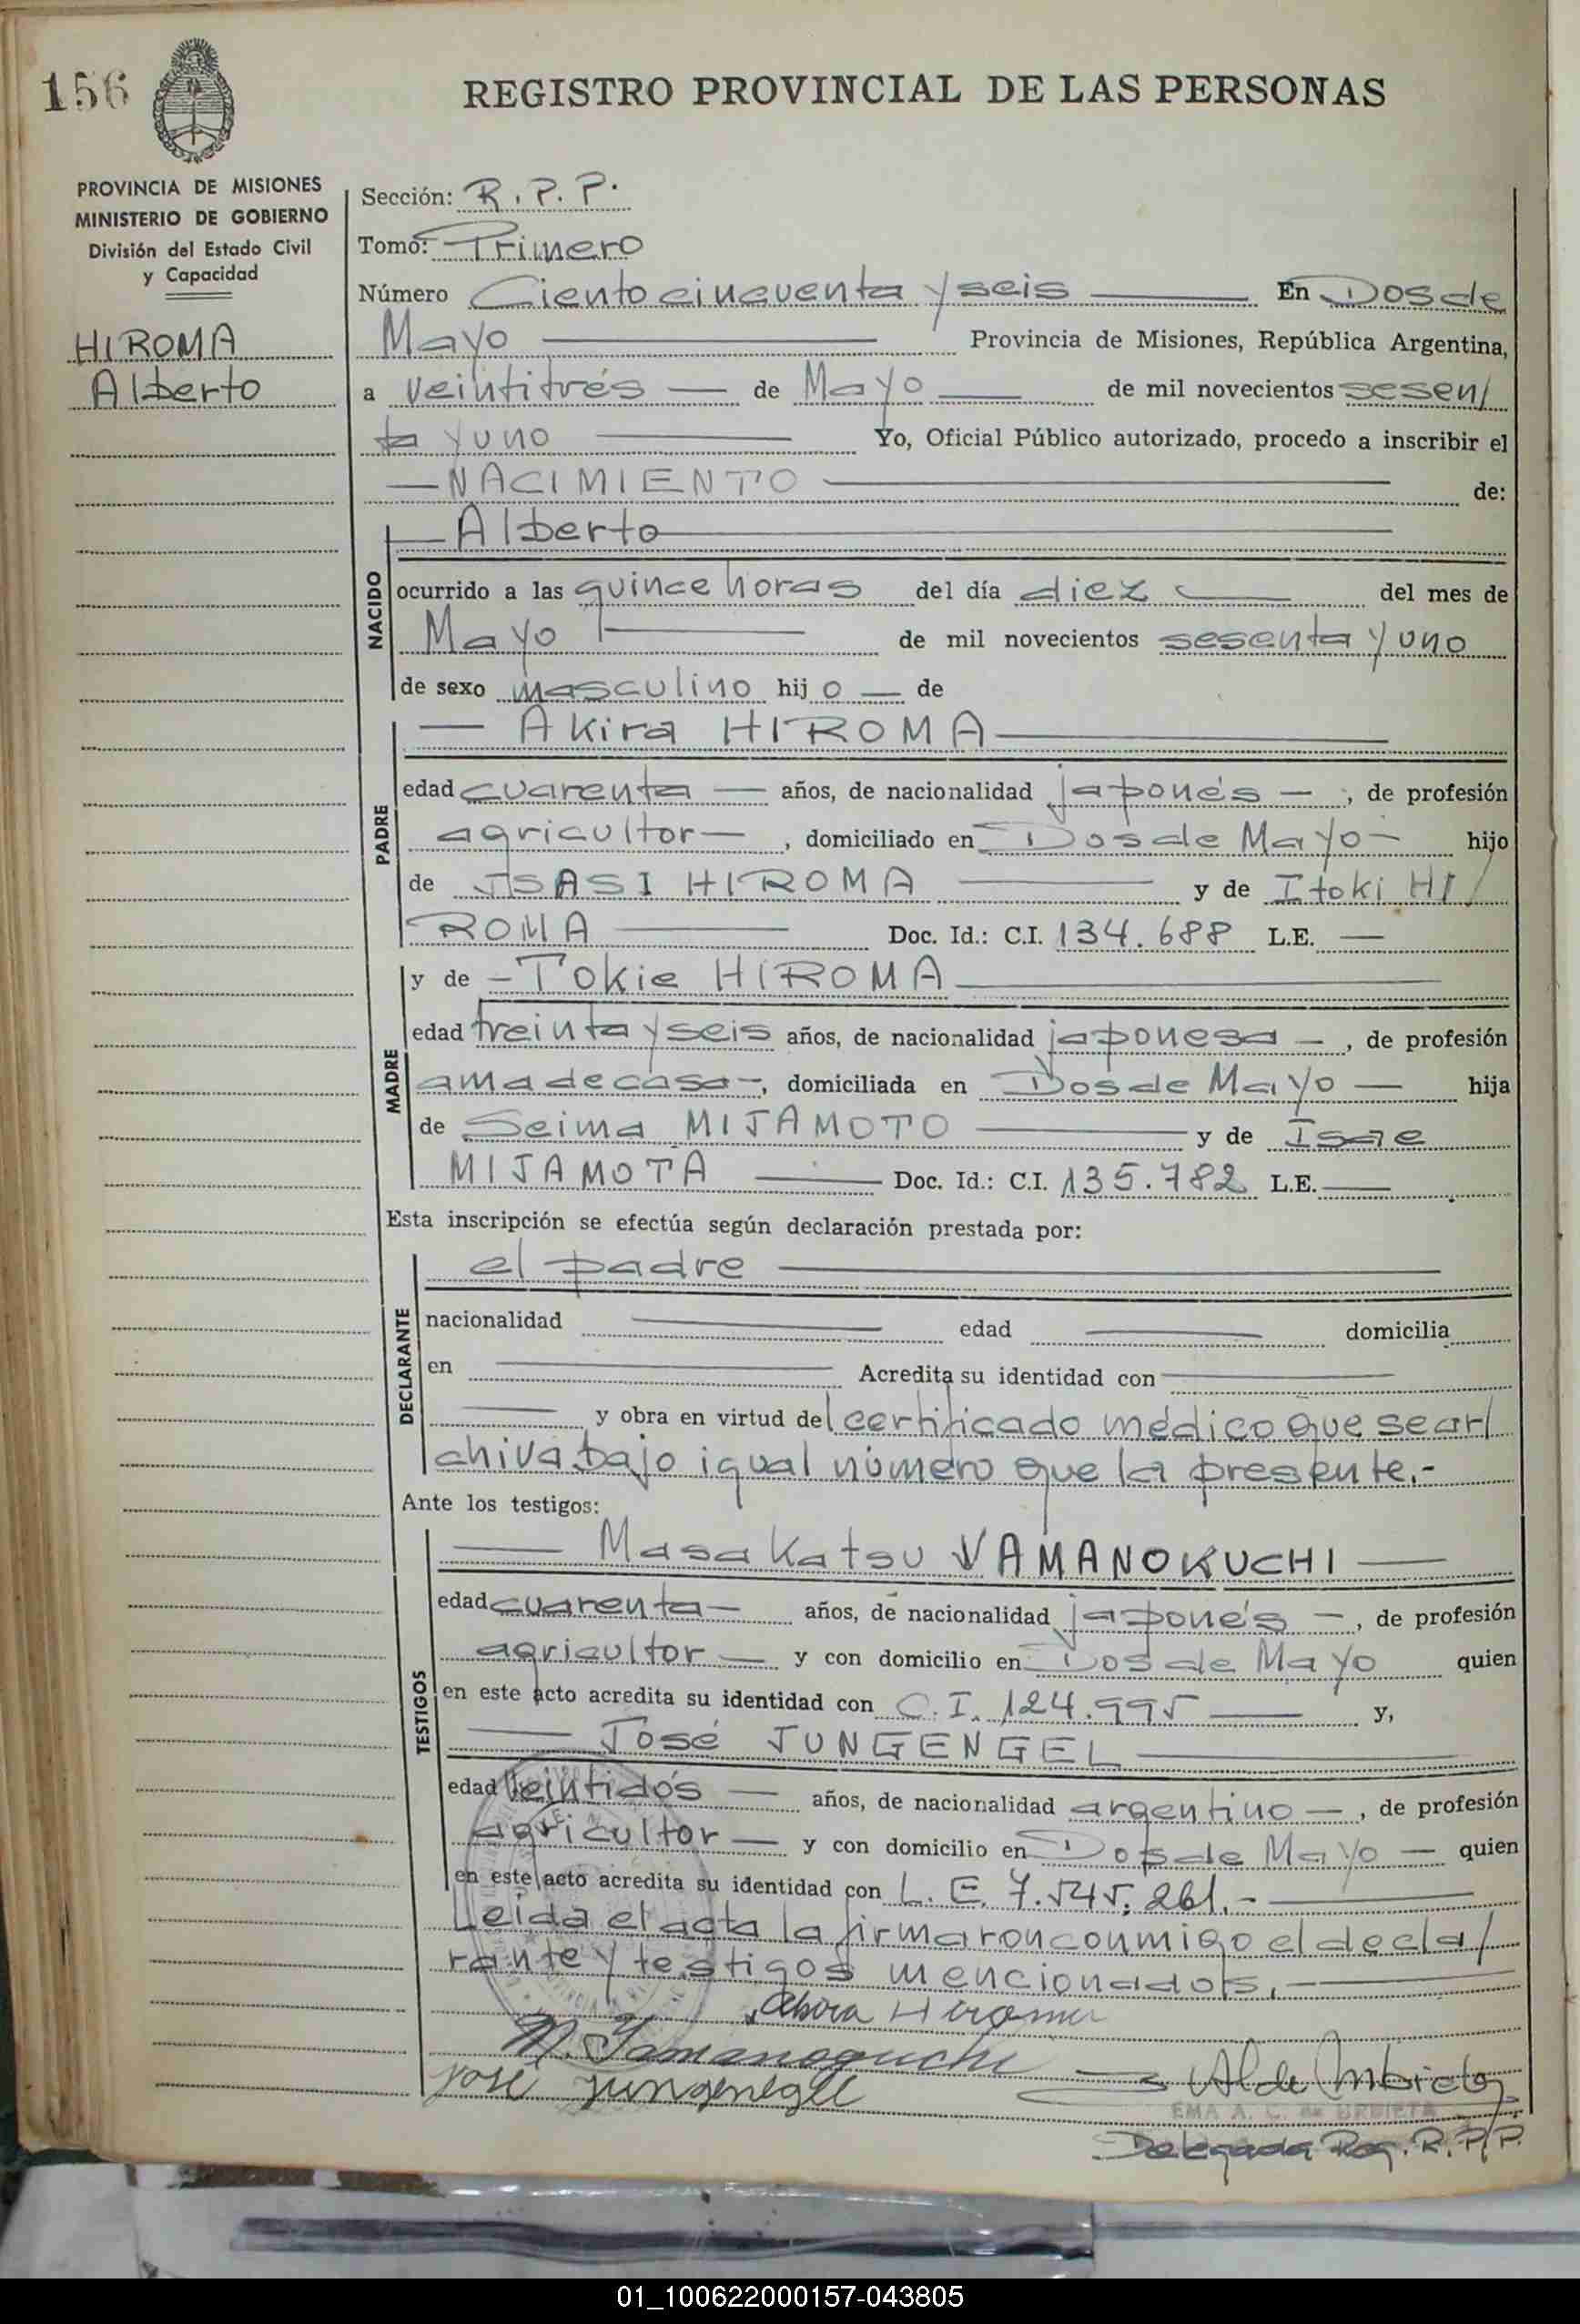 156
REGISTRO PROVINCIAL DE LAS PERSONAS
PROVINCIA DE MISIONES
MINISTERIO DE GOBIERNO
División del Estado Civil
y Capacidad
HIROMA
Alberto
Sección: R.P.P.
Tomo: Primero
Número Ciento cincuenta y seis En Dos de
Mayo Provincia de Misiones, República Argentina,
a veintitrés de Mayo de mil novecientos sesen/
ta y uno Yo, Oficial Público autorizado, procedo a inscribir el
NACIMIENTO de:
Alberto
NACIDO
ocurrido a las quince horas del día diez del mes de
Mayo de mil novecientos sesenta y uno
de sexo masculino hijo de
PADRE
Akira HIROMA
edad cuarenta años, de nacionalidad japonés, de profesión
agricultor, domiciliado en Dos de Mayo hijo
de ISASI HIROMA y de Itoki HI/
ROMA Doc. Id.: C.I. 134.688 L.E. —
MADRE
y de Tokie HIROMA
edad treinta y seis años, de nacionalidad japonesa, de profesión
ama de casa, domiciliada en Dos de Mayo hija
de Seima MIJAMOTO y de Isae
MIJAMOTA Doc. Id.: C.I. 135.782 L.E. —
Esta inscripción se efectúa según declaración prestada por:
DECLARANTE
el padre
nacionalidad — edad — domicilia
en — Acredita su identidad con —
— y obra en virtud del certificado médico que se ar/
chiva bajo igual número que la presente.-
Ante los testigos:
TESTIGOS
Masakatsu YAMANOKUCHI
edad cuarenta años, de nacionalidad japonés, de profesión
agricultor y con domicilio en Dos de Mayo quien
en este acto acredita su identidad con C.I. 124.995 y,
José JUNGENGEL
edad veintidós años, de nacionalidad argentino, de profesión
agricultor y con domicilio en Dos de Mayo quien
en este acto acredita su identidad con L.E. 7.545.261.-
Leida el acta la firmaron conmigo el decla/
rante y testigos mencionados.
Akira Hiroma
M. Yamanoguchi
José Jungenegel
EMA A. C. de URBIETA
Delegada Reg. R.P.P.
01_100622000157-043805